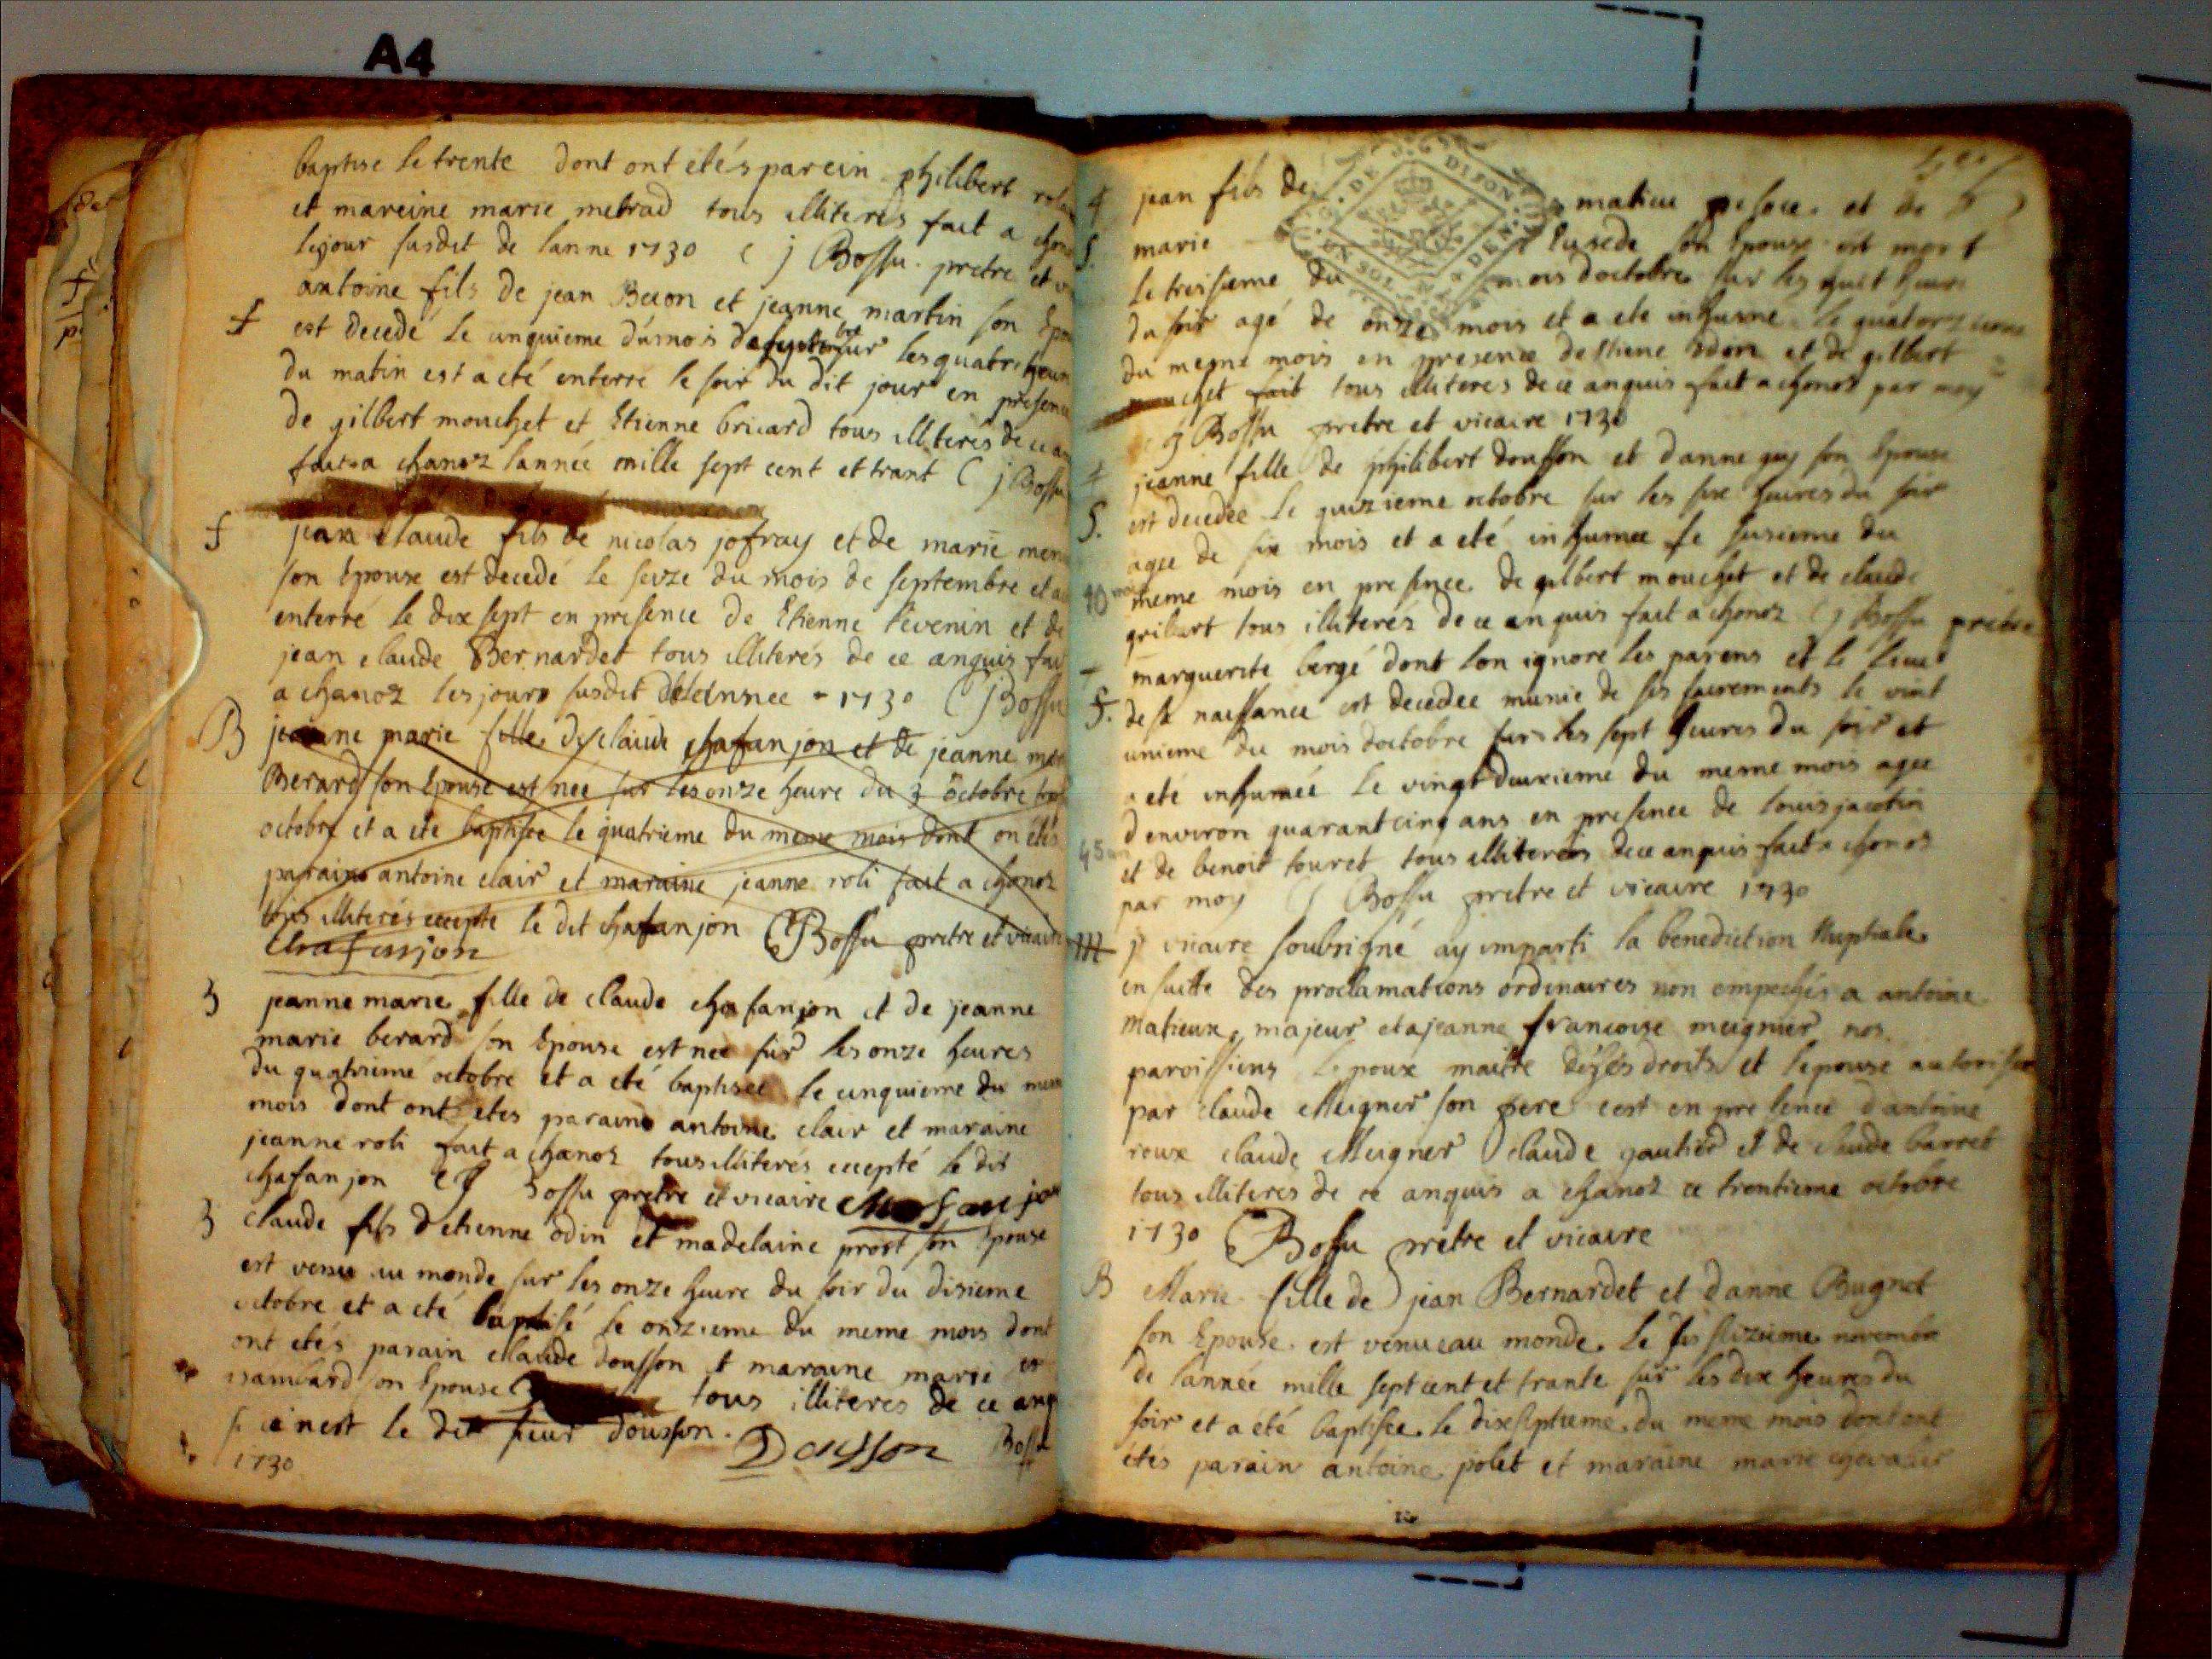 A4
baptise le trente dont ont etés parein philibert
et mareine marie metrad tous illiterés fait a
le jour susdit de lanne 1730 C j Bossu pretre et
antoine fils de jean Beçon et jeanne martin son
f est decedé le cinquieme du mois de septembre sur les quatre
du matin est a eté enterré le soir du dit jour en
de gilbert mouchet et Etienne bricard tous illiterés de ce
fait a chanoz lannée mille sept cent et trant C j Bossu
f jean claude fils de nicolas jofray et de marie
son Epouse est decedé le seize du mois de septembre et a
enterré le dix sept en presence de Etienne tevenin et de
jean claude Bernardet tous illiterés de ce anquis fai
a chanoz les jours susdit 1730 C j Bossu
B jeanne marie fille de claude chafanjon et de jeanne
Berard son Epouse est neé sur les onze heure du 3 octobre
octobre et a ete baptisée le quatrieme du meme mois dont on étés
parains antoine clair et maraine jeanne roli fait a chanoz
tous illiterés excepte le dit chafanjon C J Bossu pretre et vicaire
Chafanjon
B jeanne marie fille de claude chafanjon et de jeanne
marie berard son Epouse est neé sur les onze heures
du quatrieme octobre et a eté baptisee le cinquieme du
mois dont ont etes parains antoine clair et maraine
jeanne roli fait a chanoz tous illiterés excepté le dit
chafanjon C J Bossu pretre et vicaire Chafanjon
B claude fils detienne odin et madelaine prost son Epouse
est venu au monde sur les onze heure du soir du disieme
octobre et a eté baptisé le onzieme du meme mois dont
ont etés parain claude dousson et maraine marie
isambard son Epouse tous illiteres de ce anq
si ce nest le dit sieur dousson. Dousson Bossu
1730
G. DE DIJON
UN SOL
DEN
jean fils de matieu et de
marie son Epouse est mort
le treisieme du mois doctobre sur les huit heures
du soir agé de onze mois et a ete inhumé le quatorzieme
du meme mois en presence destiene odin et de gilbert
mouchet fait tous illiteres de ce anquis fait a chanoz par moy
C J Bossu pretre et vicaire 1730
jeanne fille de philibert dousson et danne guy son Epouse
S. est decedée le quizieme octobre sur les six heures du soir
agee de six mois et a eté inhumee le susieme du
meme mois en presence de gilbert mouchet et de claude
grilliart tous illiterés de ce anquis fait a chanoz C j Bossu pretre
marguerite bergé dont lon ignore les parens et le lieu
S. de sa naissance est decedee munie de ses sacrements le vint
unieme du mois doctobre sur les sept heures du soir et
a eté inhumée le vingt deuxieme du meme mois agee
denviron quarant cinq ans en presence de louis jacotin
45 ans et de benoit touret tous illiterés de ce anquis fait a chanoz
par moy C J Bossu pretre et vicaire 1730
M j vicaire soubsigné ay imparti la benediction Nuptiale
ensuitte des proclamations ordinaires non empechés a antoine
Matieux majeur et a jeanne francoise meignier nos
paroissiens lepoux maitre de ses droits et lepouse autorisee
par claude Meigner son pere cest en presence dantoine
roux claude Meigner claude gautier et de claude barret
tous illiteres de ce anquis a chanoz ce trentieme octobre
1730 C J Bossu pretre et vicaire
B Marie fille de jean Bernardet et danne Bugnot
son Epouse est venue au monde le seizieme novembre
de lannée mille sept cent et trante sur les dix heures du
soir et a été baptisee le dixseptieme du meme mois dont ont
étés parain antoine polet et maraine marie chevalier